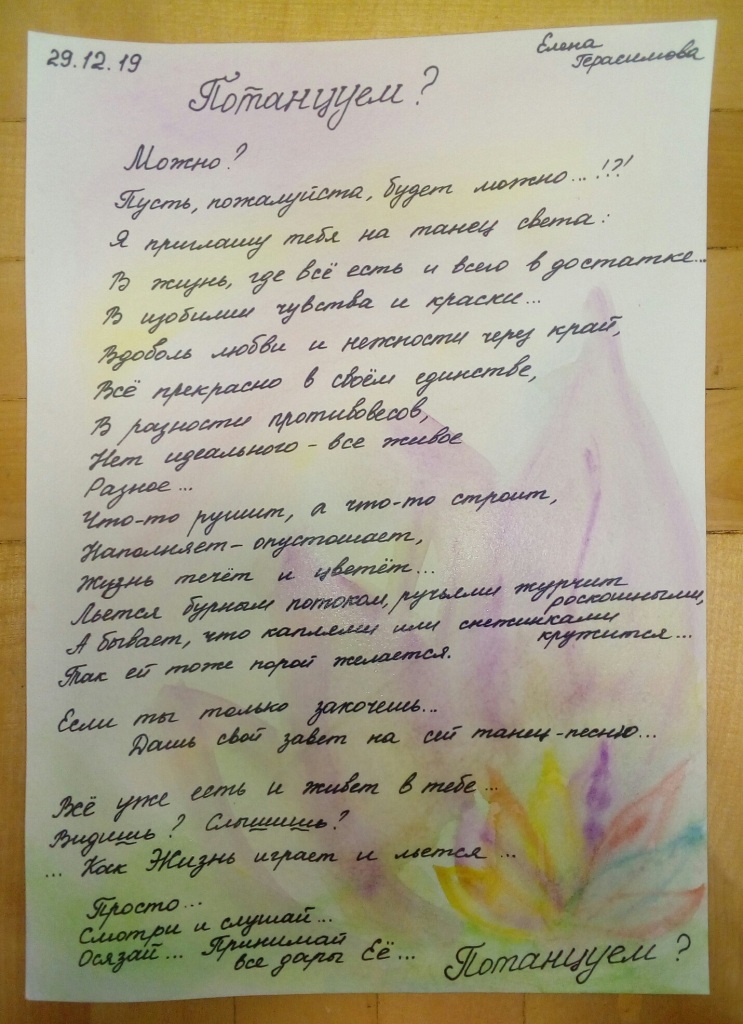 29.12.19
Елена
Герасимова
Потанцуем?
Можно?
Пусть, пожалуйста, будет можно...!?!
Я приглашу тебя на танец света:
В жизнь, где всё есть и всего в достатке...
В изобилии чувства и краски...
Вдоволь любви и нежности через край,
Всё прекрасно в своём единстве,
В разности противовесов,
Нет идеального - все живое
Разное...
Что-то рушит, а что-то строит,
Наполняет - опустошает,
Жизнь течёт и цветёт...
Льется бурным потоком, ручьями журчит
роскошными,
А бывает, что каплями или снежинками
кружится...
Так ей тоже порой желается.
Если ты только захочешь...
Дашь свой завет на сей танец-песню...
Всё уже есть и живет в тебе...
Видишь? Слышишь?
... Как Жизнь играет и льется ...
Просто...
Смотри и слушай...
Осязай... Принимай
все дары Её...
Потанцуем?